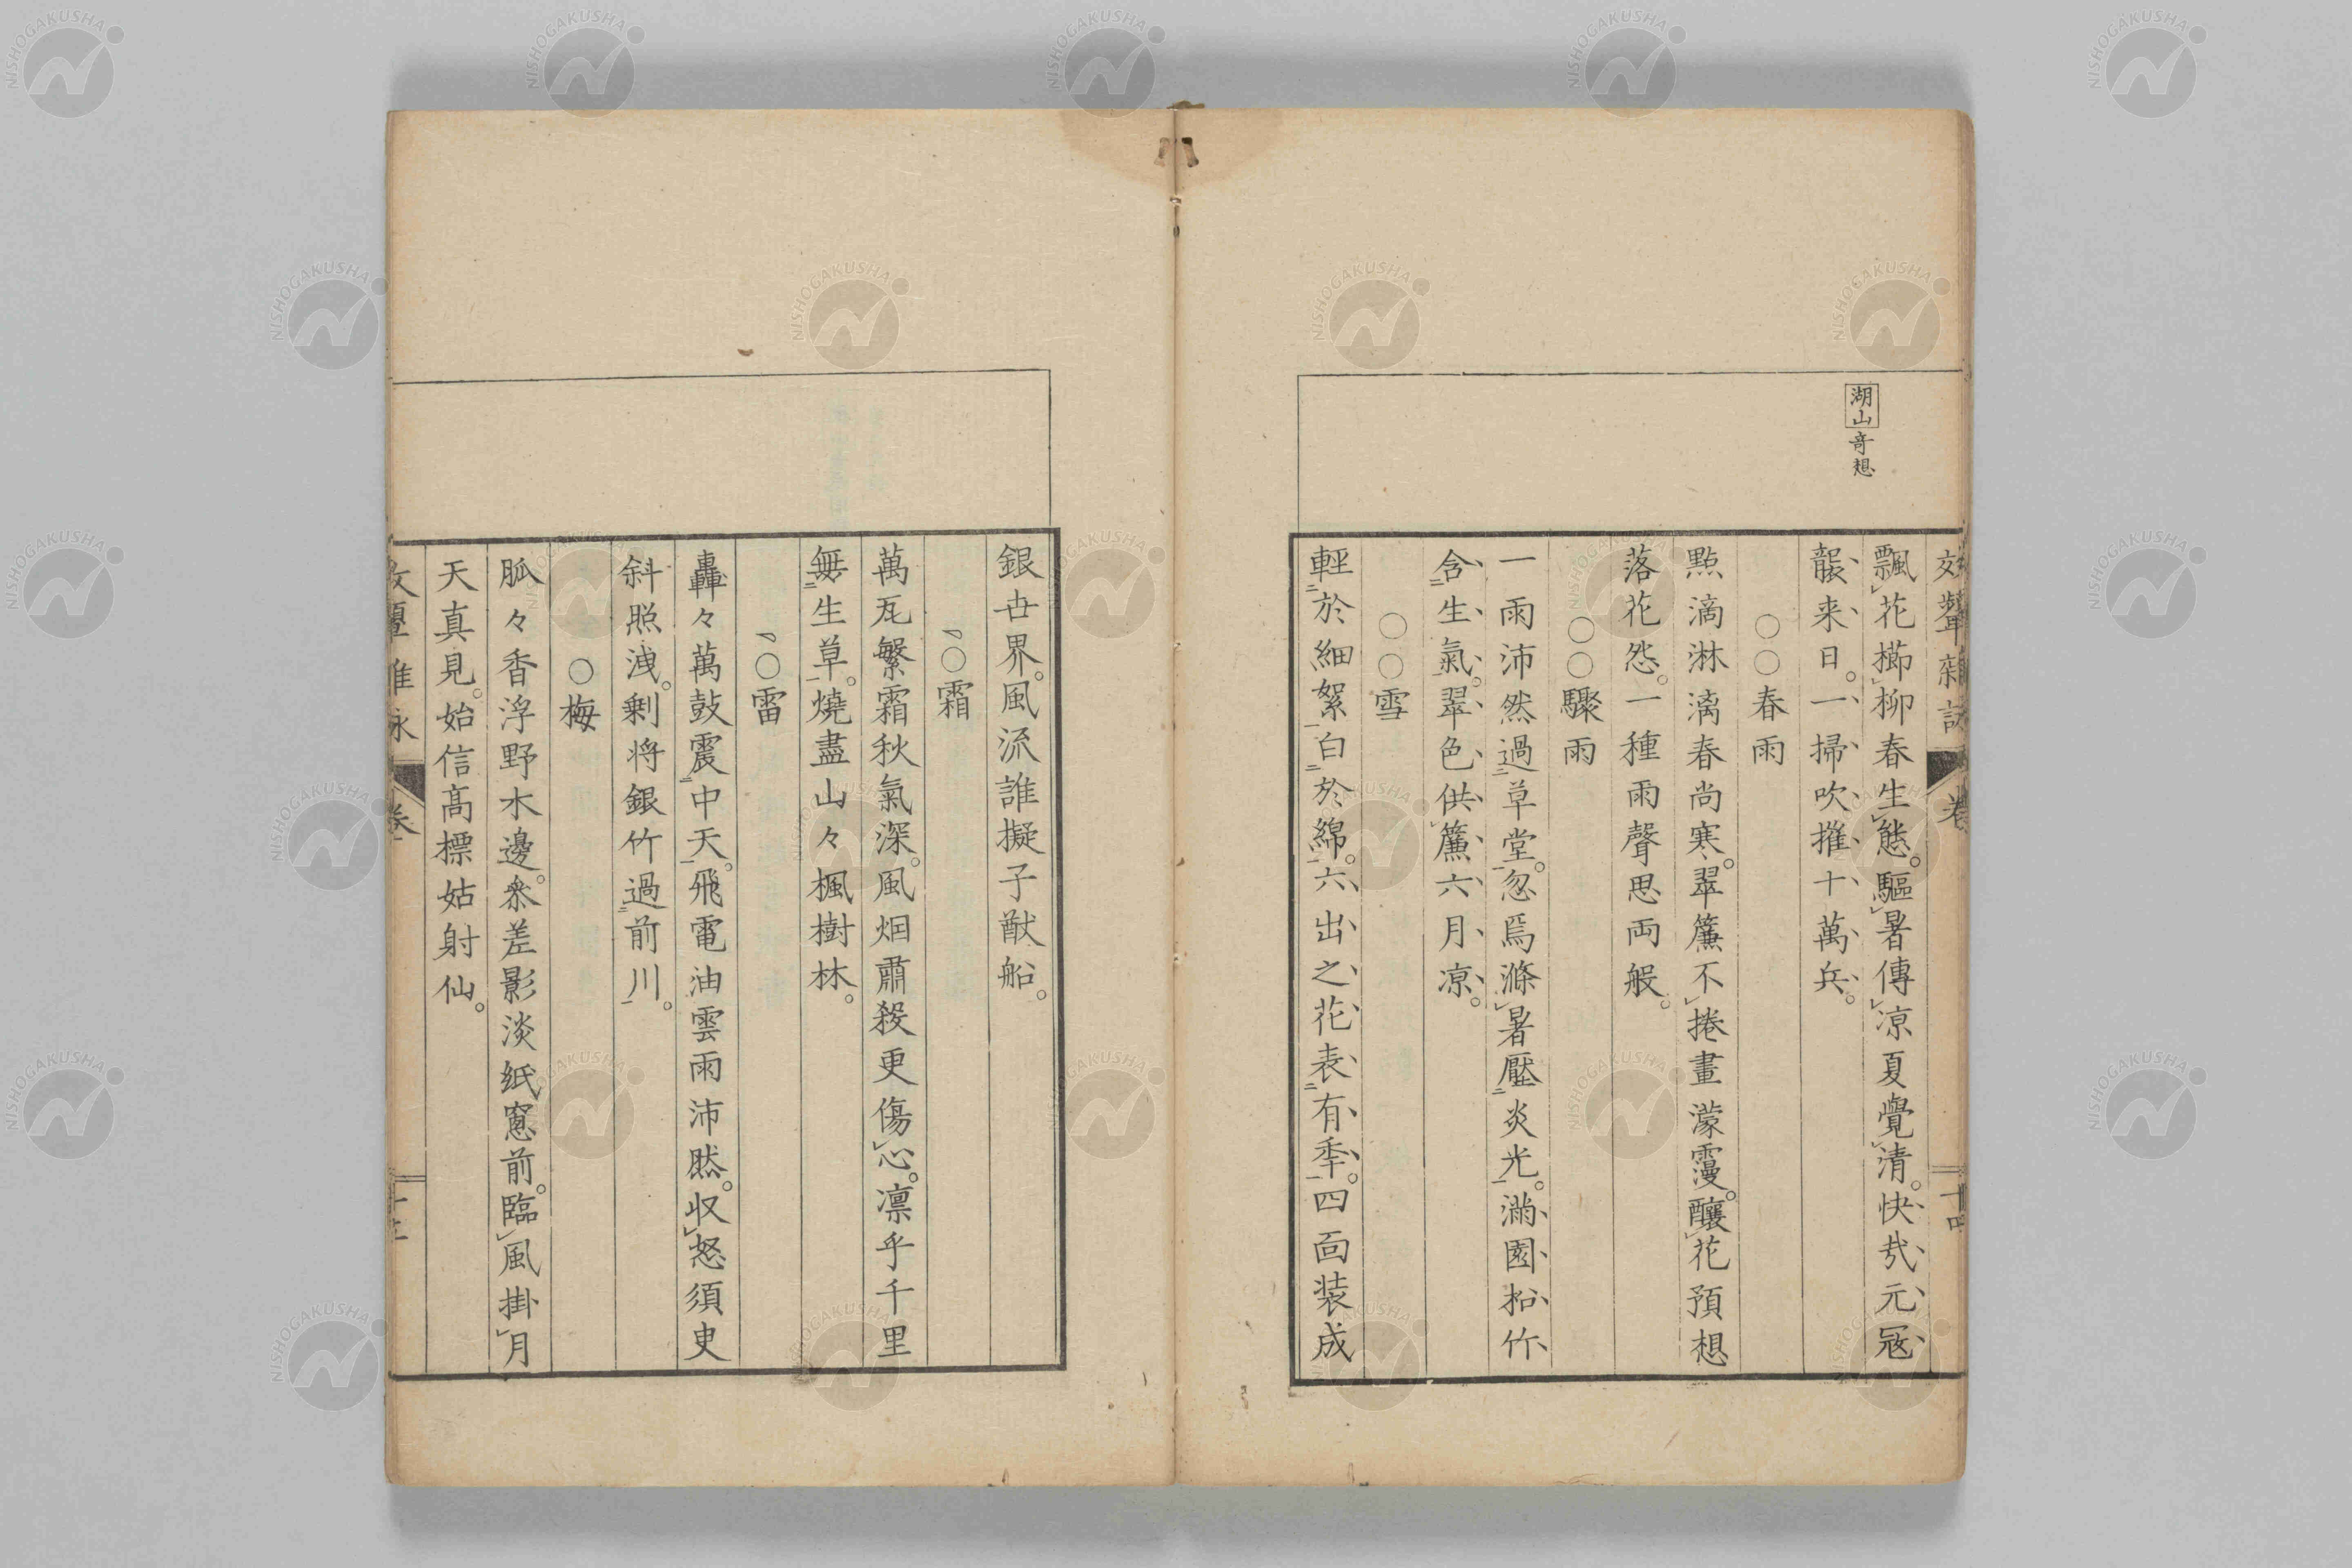 湖山奇想
飄花櫛柳春生態。驅暑傳凉夏覺清。快哉元冦
襲来日。一掃吹摧十萬兵。
○○春雨
點滴淋漓春尚寒。翠簾不捲晝濛靉。釀花預想
落花怨。一種雨聲思両般。
○○驟雨
一雨沛然過草堂。忽焉滌暑壓炎光。滿園松竹
含生氣。翠色供簾六月凉。
○○雪
輕於細絮白於綿。六出之花表有季。四面装成
銀世界。風流誰擬子猷船。
○霜
萬瓦繁霜秋氣深。風烟肅殺更傷心。凛乎千里
無生草。燒盡山々楓樹林。
○雷
轟々萬鼓震中天。飛電油雲雨沛然。収怒須臾
斜照洩。剰将銀竹過前川。
○梅
胍々香浮野水邊。叅差影淡紙窻前。臨風掛月
天真見。始信髙標姑射仙。
NISHOGAKUSHA